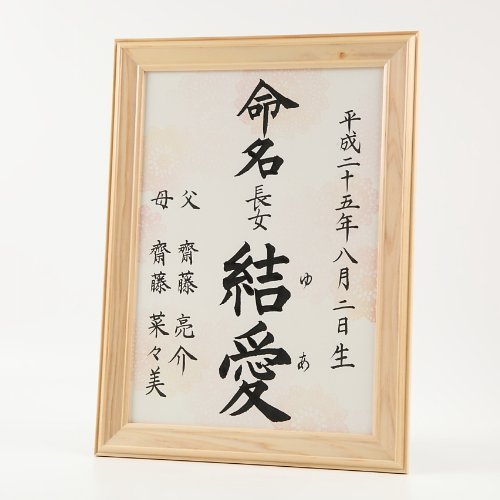 平成二十五年八月二日生
命名
長女
結愛
ゆあ
父 齋藤 亮介
母 齋藤 菜々美